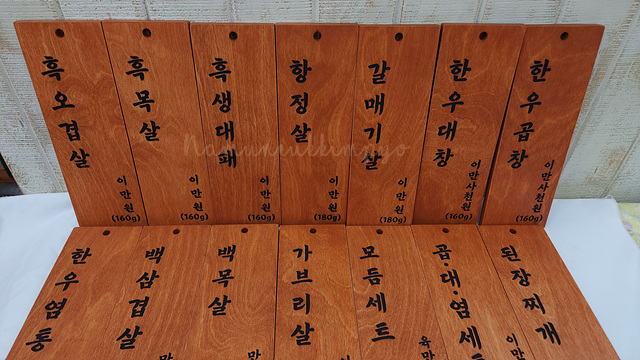 흑오겹살
이만원
(160g)
흑목살
이만원
(160g)
흑생대패
이만원
(160g)
항정살
이만원
(180g)
갈매기살
이만원
(180g)
한우대창
이만사천원
(160g)
한우곱창
이만사천원
(160g)
한우염통
백삼겹살
만
백목살
만
가브리살
모듬세트
육만
곱·대·염세트
이만
된장찌개